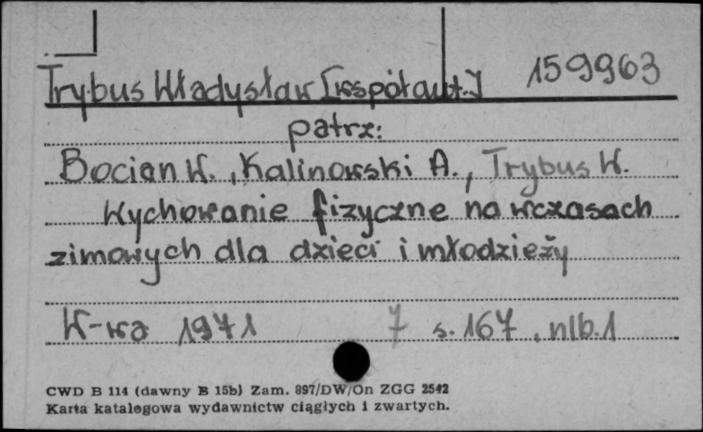 Trybus Władysław [współaut.] 159963
patrz:
Bocian W., Kalinowski A., Trybus W.
Wychowanie fizyczne na wczasach
zimowych dla dzieci i młodzieży
W-wa 1971 7 s. 167, nlb. 1
CWD B 114 (dawny B 15b) Zam. 897/DW/On ZGG 2542
Karta katalogowa wydawnictw ciągłych i zwartych.